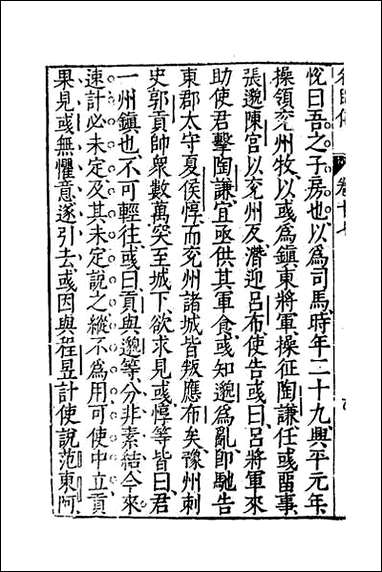 卷十七
悅曰吾之子房也以為司馬時年二十九興平元年
操領兗州牧以彧為鎮東將軍操征陶謙任彧畱事
張邈陳宮以兗州反潛迎呂布使告彧曰呂將軍來
助使君擊陶謙宜亟供其軍食彧知邈為亂即馳告
東郡太守夏侯惇而兗州諸城皆叛應布矣豫州刺
史郭貢帥衆數萬突至城下欲求見彧惇等皆曰君
一州鎮也不可輕往彧曰貢與邈等分非素結今來
速計必未定及其未定說之縱不為用可使中立貢
果見彧無懼意遂引去彧因與程昱計使說范東阿